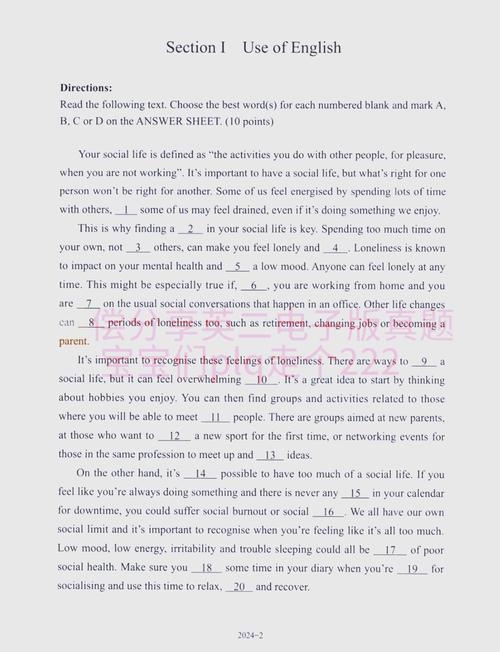 Section I Use of English
Directions:
Read the following text. Choose the best word(s) for each numbered blank and mark A,
B, C or D on the ANSWER SHEET. (10 points)
Your social life is defined as “the activities you do with other people, for pleasure,
when you are not working”. It’s important to have a social life, but what’s right for one
person won’t be right for another. Some of us feel energised by spending lots of time
with others, 1 some of us may feel drained, even if it’s doing something we enjoy.
This is why finding a 2 in your social life is key. Spending too much time on
your own, not 3 others, can make you feel lonely and 4 . Loneliness is known
to impact on your mental health and 5 a low mood. Anyone can feel lonely at any
time. This might be especially true if, 6 , you are working from home and you
are 7 on the usual social conversations that happen in an office. Other life changes
can 8 periods of loneliness too, such as retirement, changing jobs or becoming a
parent.
偿分享英二电子版真题
宝宝们plq走个222
It’s important to recognise these feelings of loneliness. There are ways to 9 a
social life, but it can feel overwhelming 10 . It’s a great idea to start by thinking
about hobbies you enjoy. You can then find groups and activities related to those
where you will be able to meet 11 people. There are groups aimed at new parents,
at those who want to 12 a new sport for the first time, or networking events for
those in the same profession to meet up and 13 ideas.
On the other hand, it’s 14 possible to have too much of a social life. If you
feel like you’re always doing something and there is never any 15 in your calendar
for downtime, you could suffer social burnout or social 16 . We all have our own
social limit and it’s important to recognise when you’re feeling like it’s all too much.
Low mood, low energy, irritability and trouble sleeping could all be 17 of poor
social health. Make sure you 18 some time in your diary when you’re 19 for
socialising and use this time to relax, 20 and recover.
2024-2